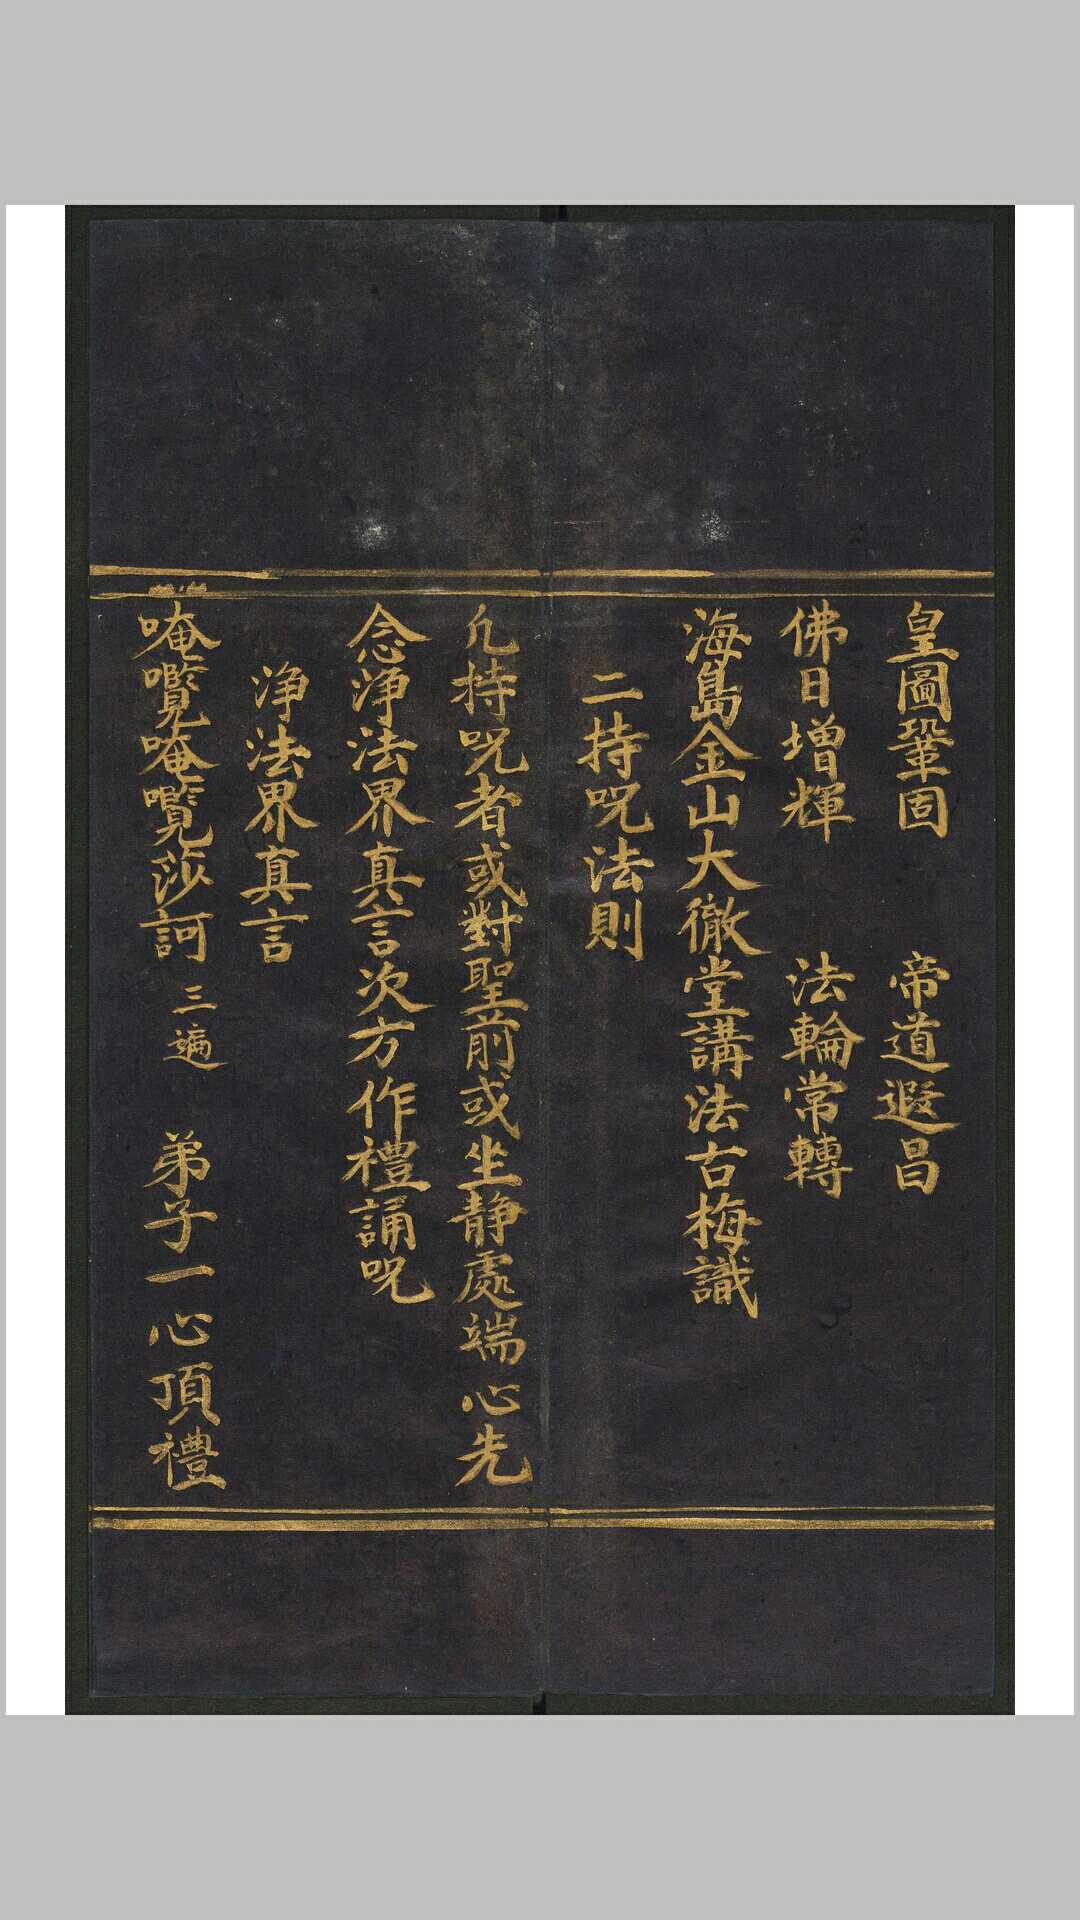 皇圖鞏固　帝道遐昌
佛日增輝　法輪常轉
海島金山大徹堂講法古梅識
二持呪法則
凢持呪者或對聖前或坐静處端心先
念淨法界真言次方作禮誦呪
淨法界真言
唵囕唵囕莎訶三遍　弟子一心頂禮